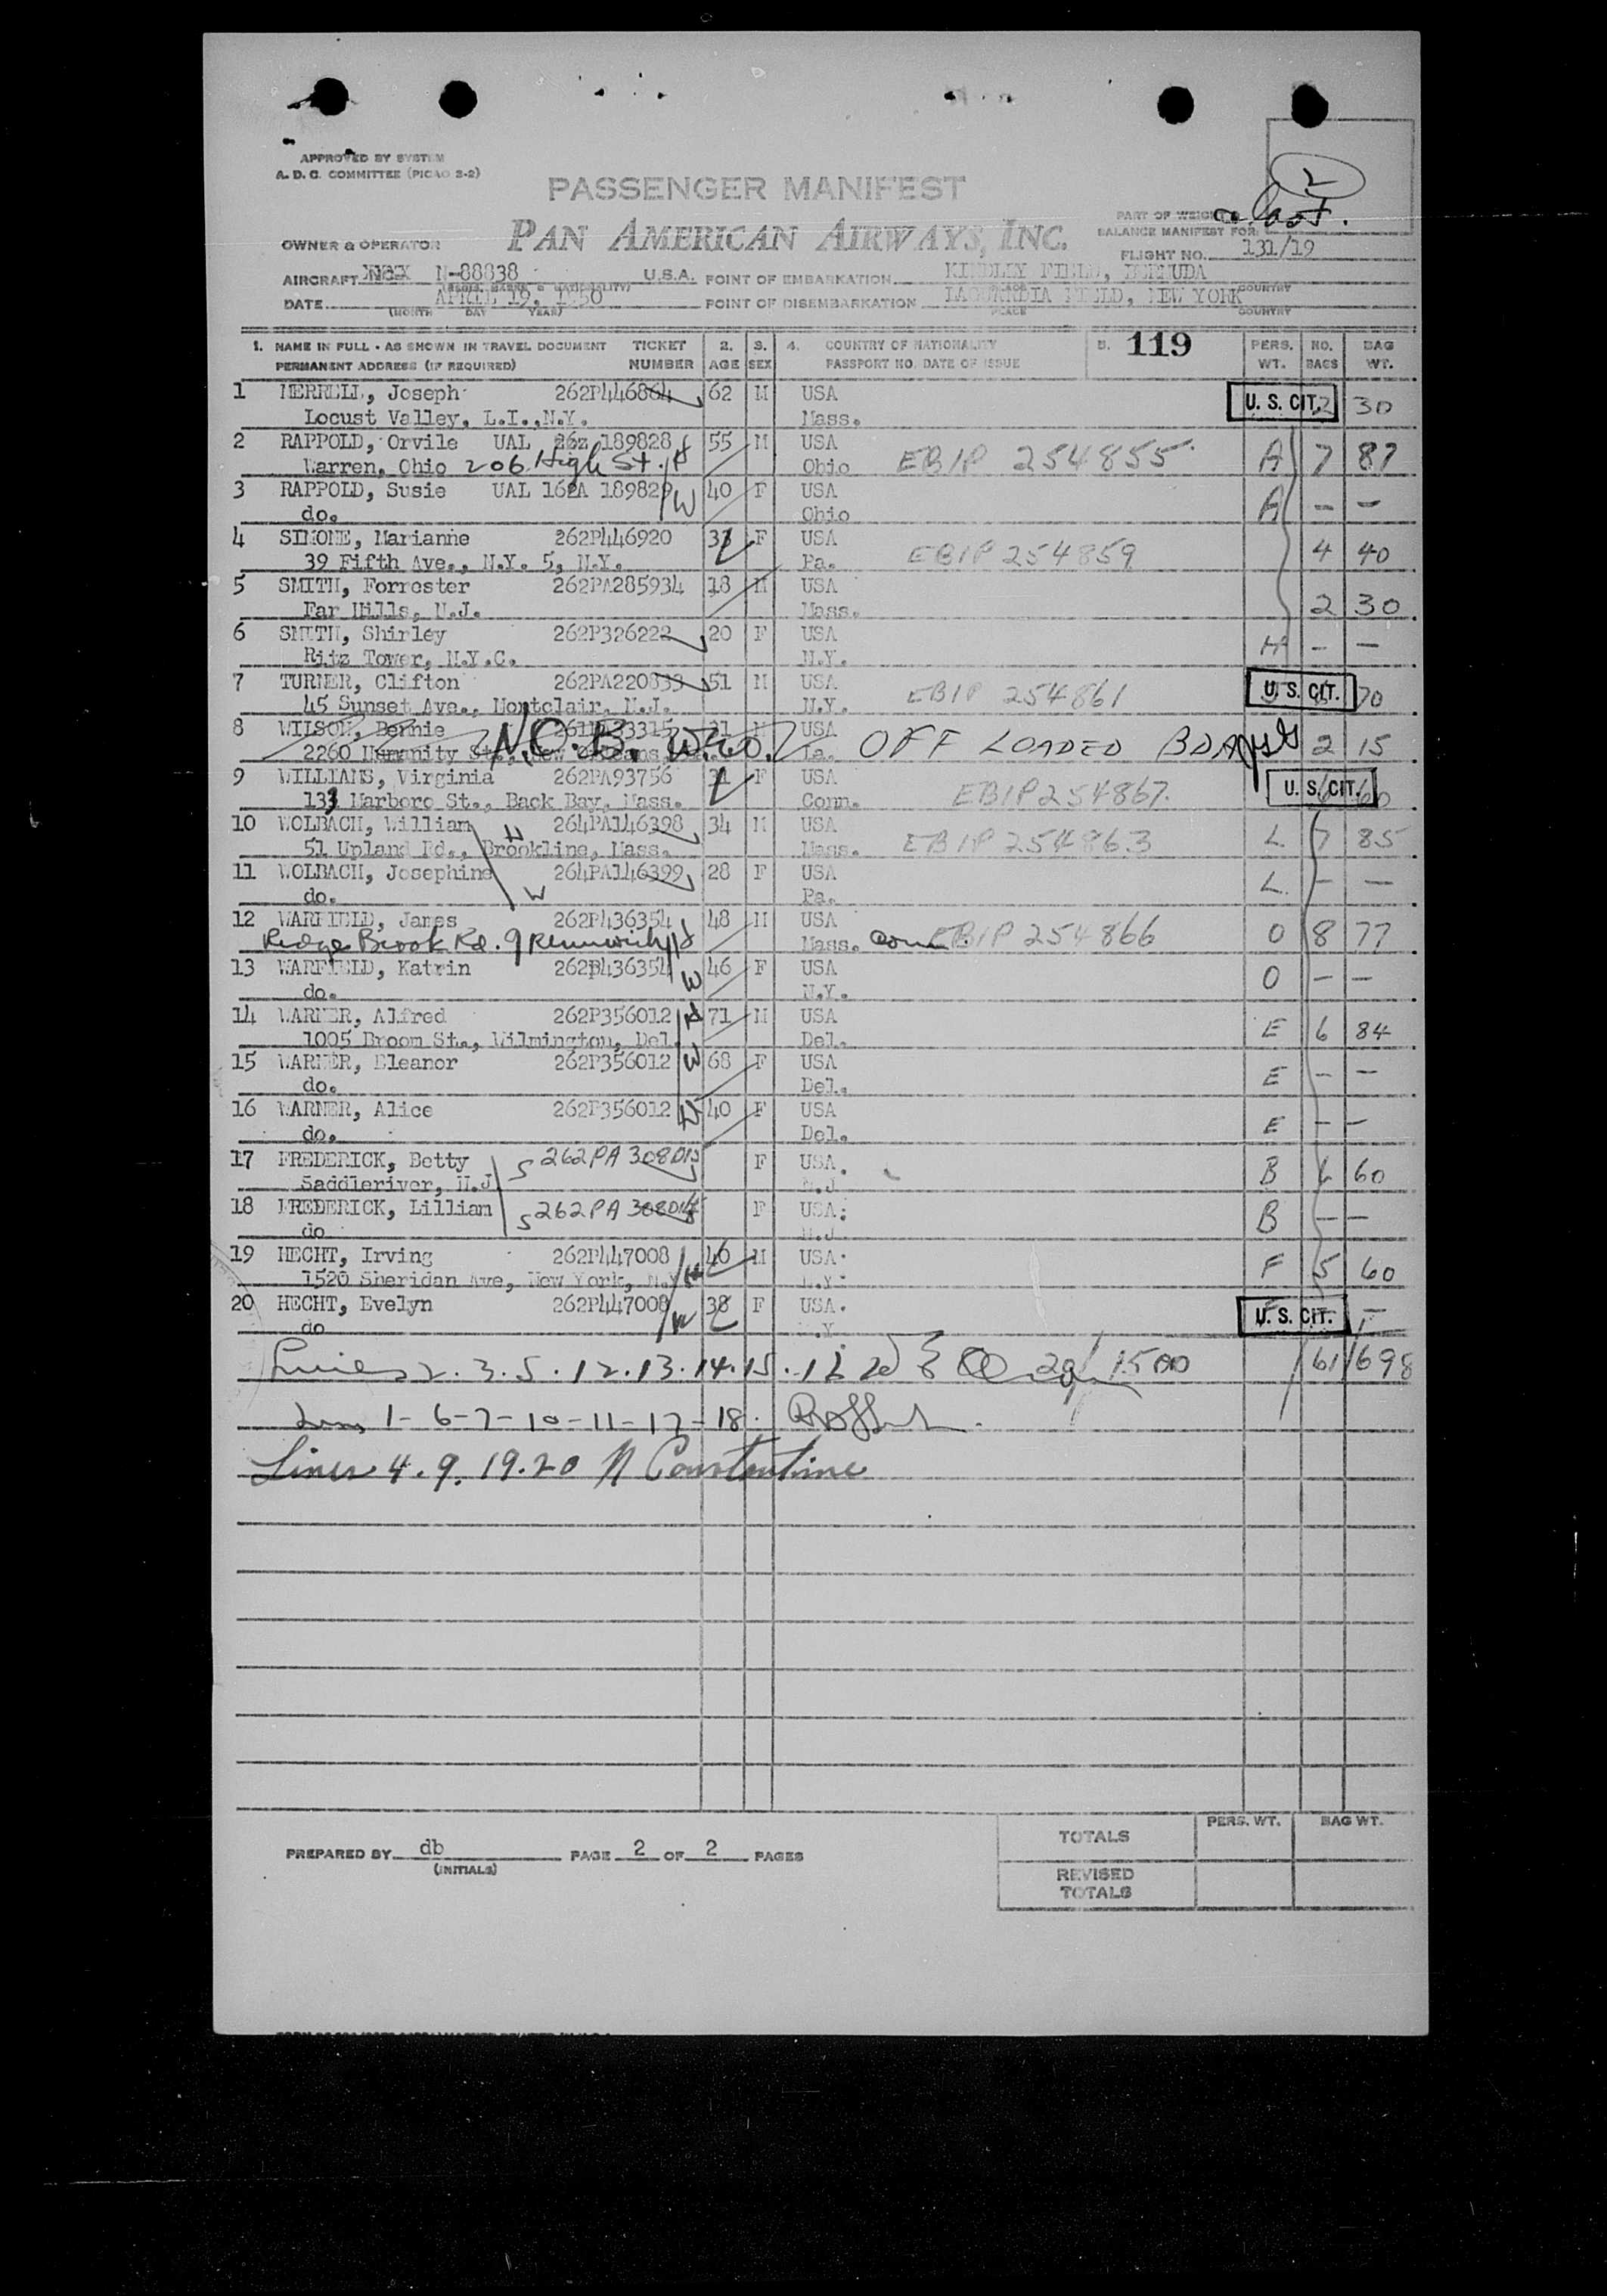 APPROVED BY SYSTEM
A. D. C. COMMITTEE (PICAO 2-2)
2
PASSENGER MANIFEST
PAN AMERICAN AIRWAYS, INC.
PART OF WEIGHT &
BALANCE MANIFEST FOR:
OWNER & OPERATOR
FLIGHT NO. 131/19
AIRCRAFT N-88838 U.S.A. POINT OF EMBARKATION KINDLEY FIELD, BERMUDA
DATE APRIL 19, 1950 POINT OF DISEMBARKATION LAGUARDIA FIELD, NEW YORK
(MONTH DAY YEAR) PLACE COUNTRY
1. NAME IN FULL - AS SHOWN IN TRAVEL DOCUMENT TICKET 2. 3. 4. COUNTRY OF NATIONALITY 5. 119 PERS. NO. BAG
PERMANENT ADDRESS (IF REQUIRED) NUMBER AGE SEX PASSPORT NO. DATE OF ISSUE WT. BAGS WT.
1 MERRELL, Joseph 262P446864 62 M USA U. S. CIT. 30
Locust Valley, L.I.,N.Y. Mass.
2 RAPPOLD, Orvile UAL 26z 189828 H 55 M USA
Warren, Ohio 206 High St. Ohio EBIP 254855 A 7 87
3 RAPPOLD, Susie UAL 162A 189829 W 40 F USA
do. Ohio A - -
4 SIMONE, Marianne 262P446920 F USA
39 Fifth Ave., N.Y. 5, N.Y. Pa. EBIP 254859 4 40
5 SMITH, Forrester 262PA285934 18 M USA
Far Hills, N.J. Mass. 2 30
6 SMITH, Shirley 262P326222 20 F USA
Ritz Tower, N.Y.C. N.Y. - -
7 TURNER, Clifton 262PA220839 51 M USA EBIP 254861 U. S. CIT. 70
45 Sunset Ave., Montclair, N.J. N.Y.
8 WILSON, Bennie 31 M USA
2260 Humanity St., New Orleans La. N.C.B. OFF LOADED BDA 2 15
9 WILLIAMS, Virginia 262PA93756 31 F USA
133 Marboro St., Back Bay, Mass. Conn. EBIP 254867. U. S. CIT. 60
10 WOLBACH, William H 264PA146398 34 M USA
51 Upland Rd., Brookline, Mass. Mass. EBIP 254863 L 7 85
11 WOLBACH, Josephine W 264PA146399 28 F USA
do. Pa. L - -
12 WARFIELD, James 262P436354 H 48 M USA
Ridge Brook Rd. Greenwich Mass. Conn EBIP 254866 O 8 77
13 WARFIELD, Katrin 262P436354 W 46 F USA
do. N.Y. O - -
14 WARNER, Alfred 262P356012 H 71 M USA
1005 Broom St., Wilmington, Del. Del. E 6 84
15 WARNER, Eleanor 262P356012 W 68 F USA
do. Del. E - -
16 WARNER, Alice 262P356012 D 40 F USA
do. Del. E - -
17 FREDERICK, Betty S 262PA 308013 F USA
Saddleriver, N.J. N.J. B 6 60
18 FREDERICK, Lillian S 262PA 308014 F USA
do N.J. B - -
19 HECHT, Irving 262P447008 H 40 M USA
1520 Sheridan Ave, New York, N.Y. N.Y. F 5 60
20 HECHT, Evelyn 262P447008 W 38 F USA U. S. CIT. -
do N.Y.
Lines 2. 3. 5. 12. 13. 14. 15. 16 61 698
Lines 1-6-7-10-11-17-18.
Lines 4. 9. 19. 20 N Constantine
PREPARED BY db PAGE 2 OF 2 PAGES
(INITIALS)
PERS. WT. BAG WT.
TOTALS
REVISED
TOTALS